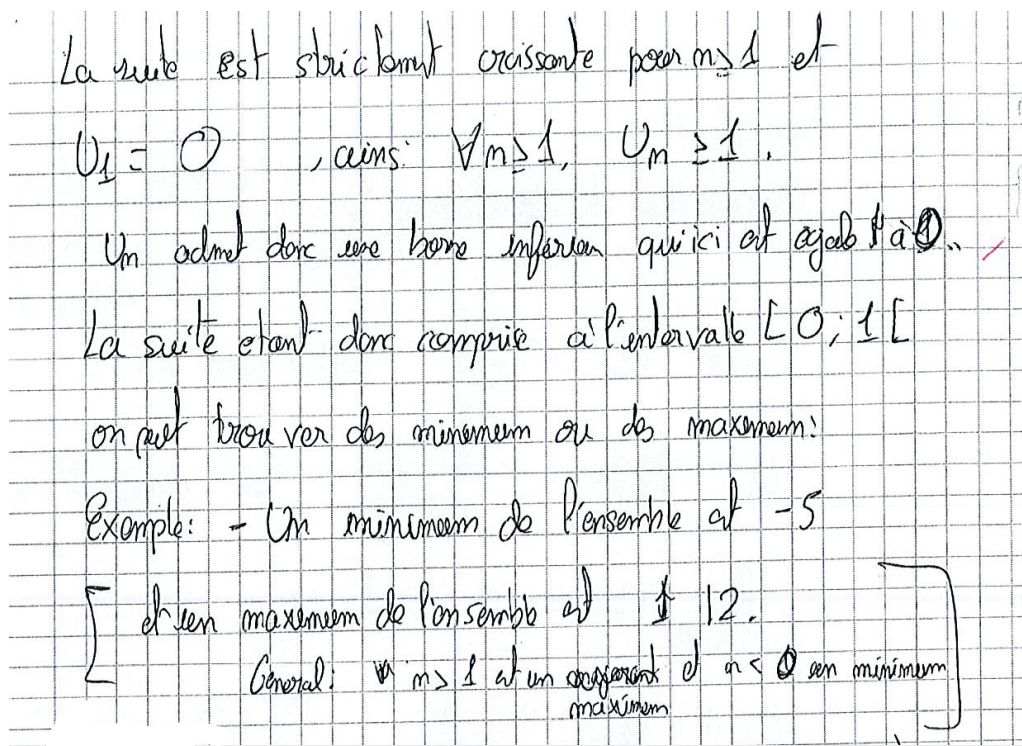 La suite est strictement croissante pour n ≥ 1 et
U1 = 0 , ainsi ∀n≥1, Un ≥ 1.
Un admet donc une borne inférieur qui ici est egale à 0.
La suite etant donc comprise à l'intervalle [0; 1[
on peut trouver des minimum ou des maximum:
Exemple: - Un minimum de l'ensemble est -5
et un maximum de l'ensemble est 12.
General: n > 1 est un
maximum et n < 0 un minimum